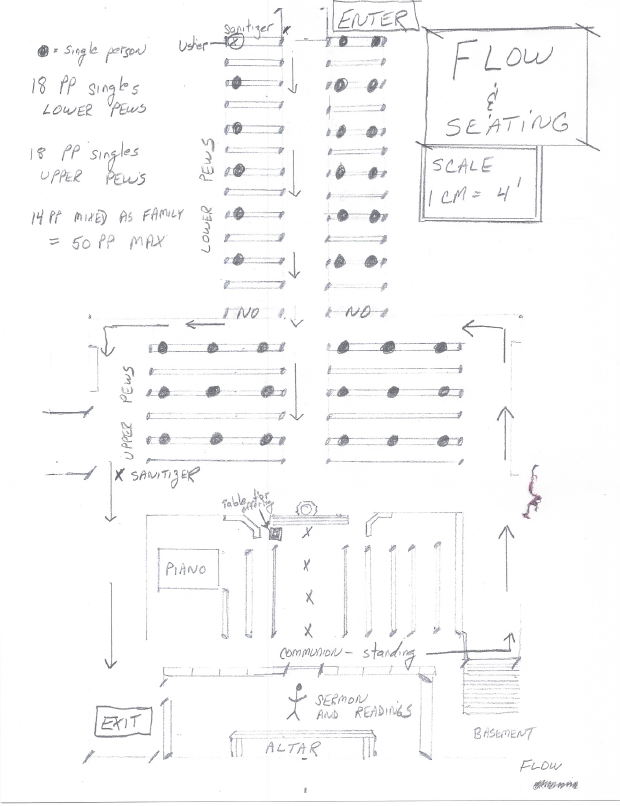 Sanitizer
x
ENTER
Usher
X
= single person
18 PP singles
LOWER PEWS
18 PP singles
UPPER PEWS
14 PP MIXED AS FAMILY
= 50 PP MAX
FLOW
&
SEATING
SCALE
1 CM = 4'
LOWER PEWS
NO
NO
UPPER PEWS
X SANITIZER
Table for
offering
X
X
X
X
PIANO
COMMUNION - standing
SERMON
AND READINGS
EXIT
ALTAR
BASEMENT
FLOW